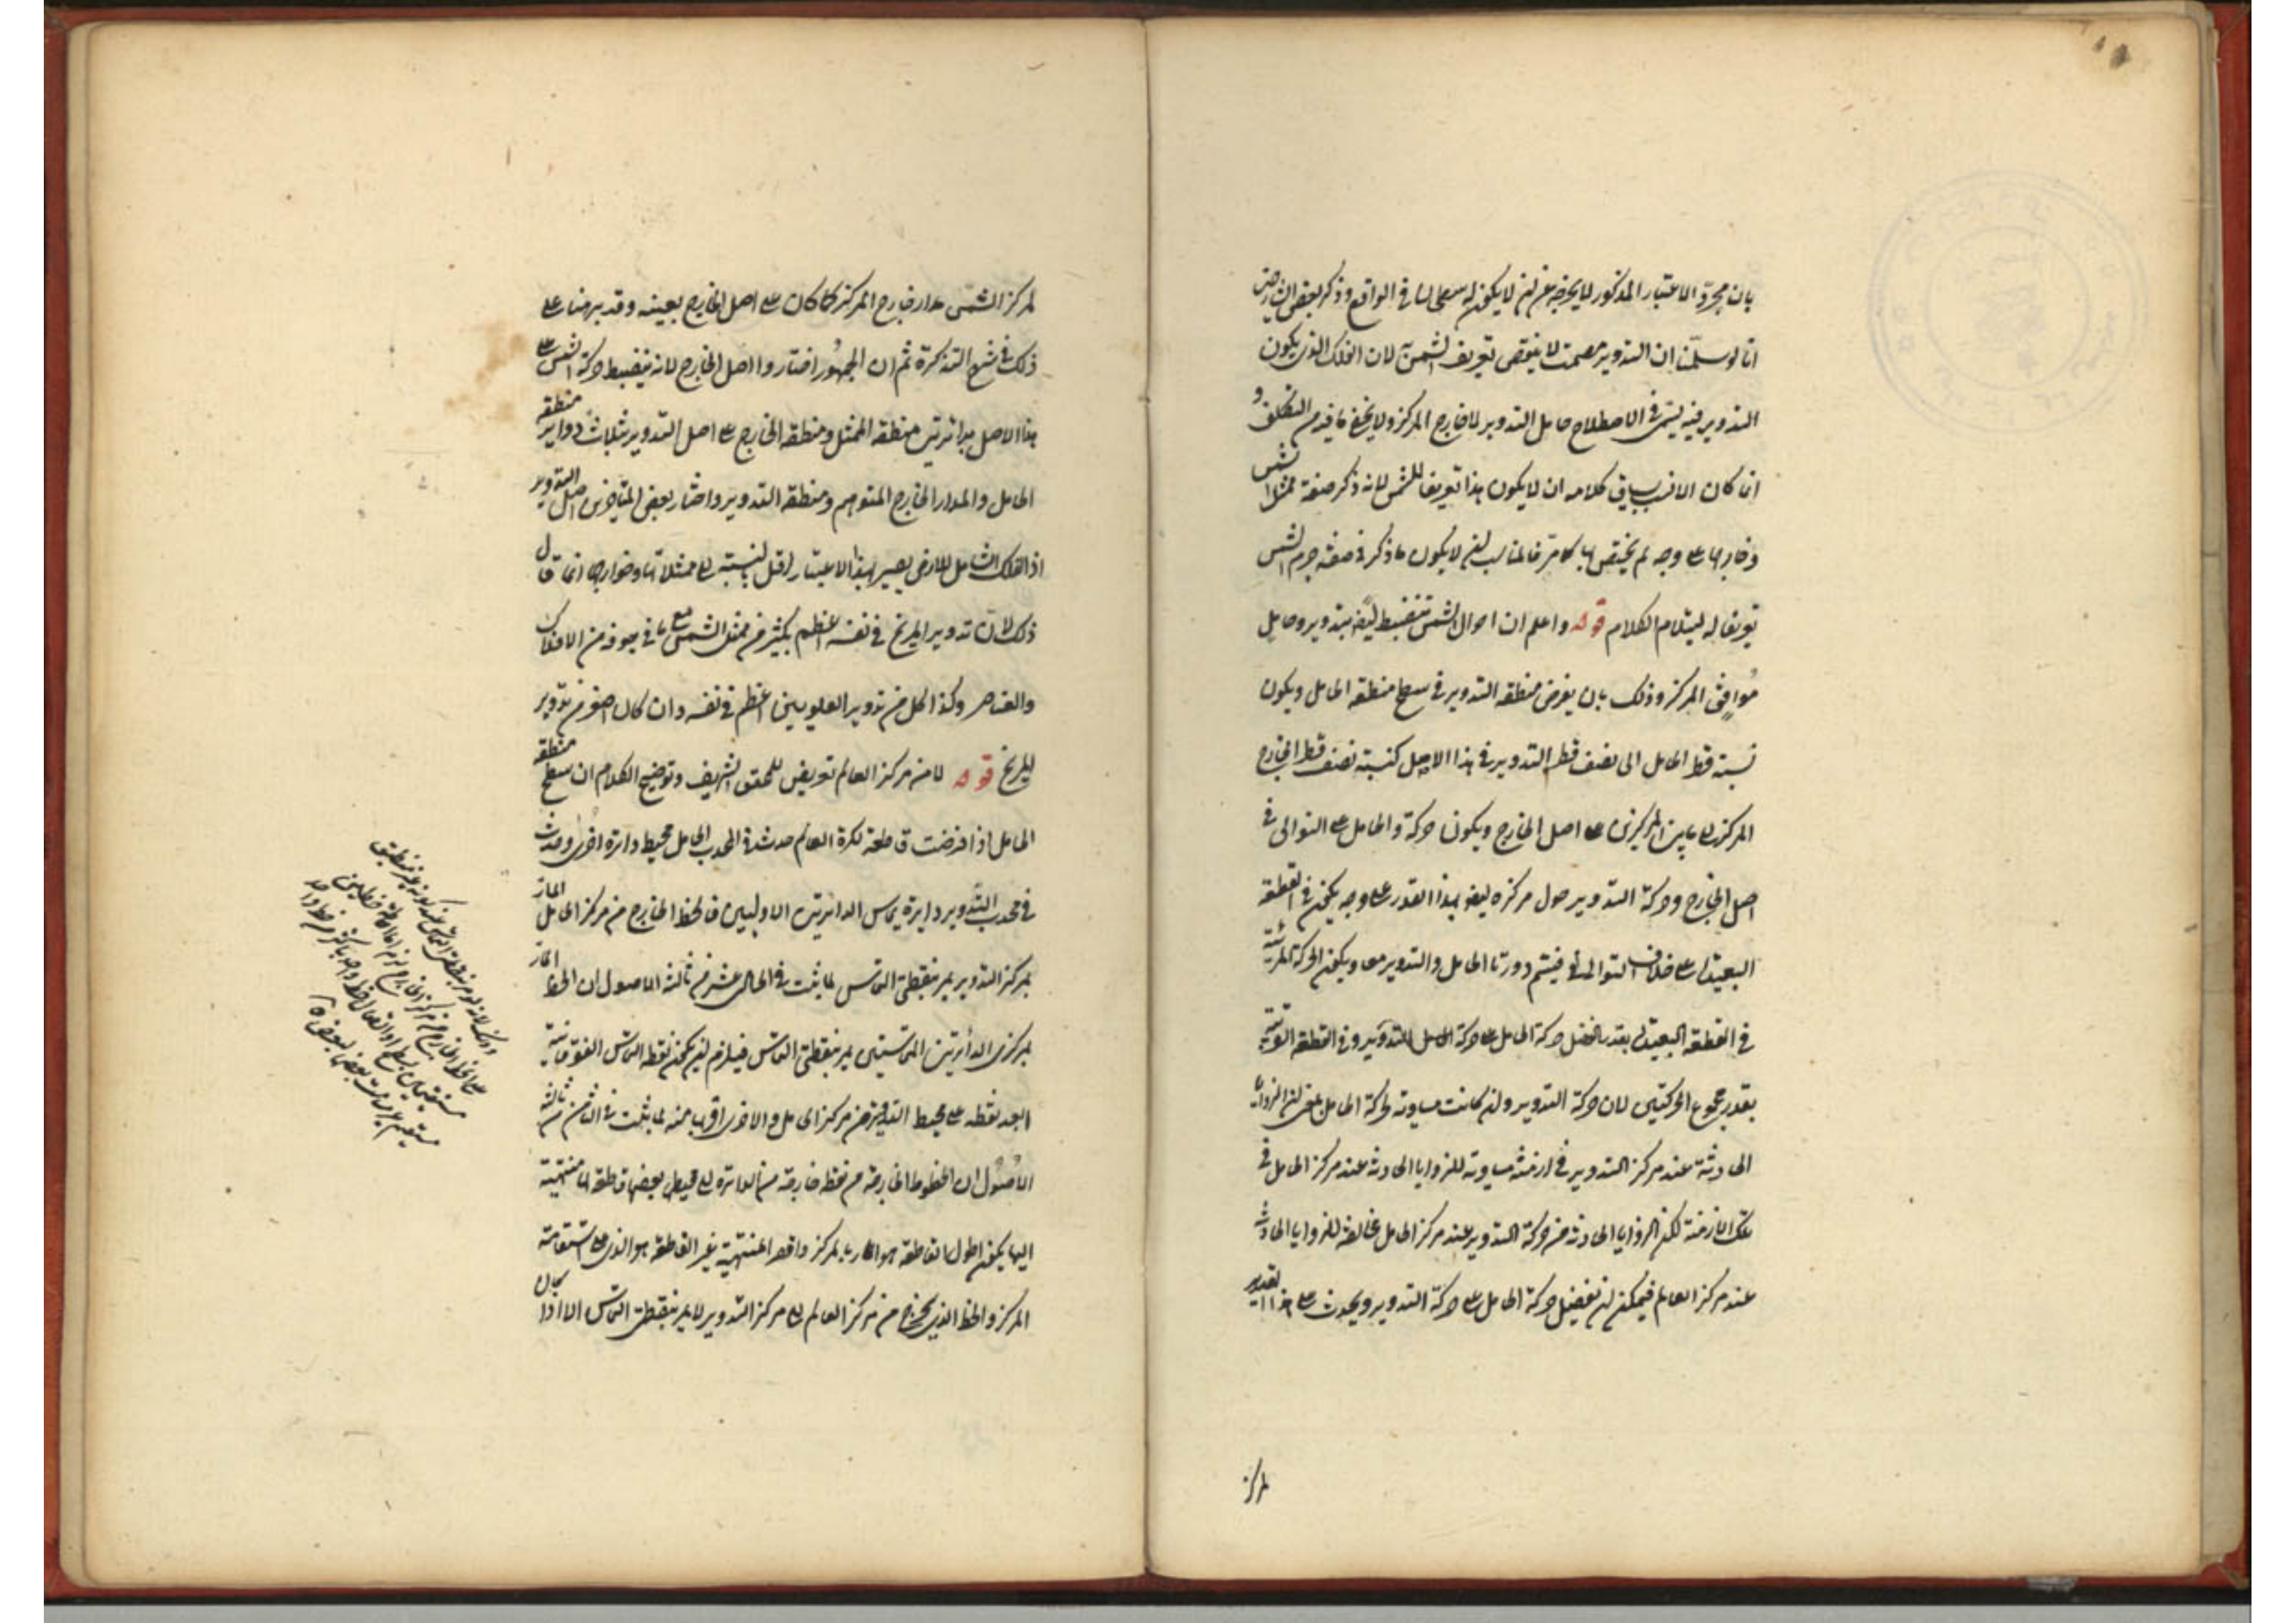 بان مجرد الاعتبار المذكور لا يخرجه عن ان لا يكون له سطحان في الواقع وذكر بعض الشارحين
انا لو سلمنا ان التدوير مصمت لا ينتقض تعريف الشمس لان الفلك الذي يكون
التدوير فيه يسمى في الاصطلاح حامل التدوير لا خارج المركز ولا يخفى ما فيه من التكلف و
انما كان الانسب بسياق كلامه ان لا يكون هذا تعريفا للشمس لانه ذكر صفة ممثل الشمس
وخارجها على وجه لم يختص بها كما مر فالمناسب ان لا يكون ما ذكر في صفة جرم الشمس
تعريفا له ليتلاءم الكلام قوله واعلم ان احوال الشمس تنضبط ايضا بتدوير وحامل
موافق المركز وذلك بان يفرض منطقة التدوير في سطح منطقة الحامل ويكون
نسبة قطر الحامل الى نصف قطر التدوير في هذا الاصل كنسبة نصف قطر الخارج
المركز الى ما بين المركزين على اصل الخارج ويكون حركة الحامل على التوالي في
اصل الخارج وحركة التدوير حول مركزه ايضا بهذا القدر على وجه يكون في القطعة
البعيدة على خلاف التوالي فيتم دورتا الحامل والتدوير معا ويكون الحركة المرئية
في القطعة البعيدة بقدر فضل حركة الحامل على حركة التدوير وفي القطعة القريبة
بقدر مجموع الحركتين لان حركة التدوير وان كانت مساوية لحركة الحامل بمعنى ان الزوايا
الحادثة عند مركز التدوير في ازمنة مساوية للزوايا الحادثة عند مركز الحامل في
تلك الازمنة لكن الزوايا الحادثة من حركة التدوير عند مركز الحامل مخالفة للزوايا الحادثة
عند مركز العالم فيمكن ان تفضل حركة الحامل على حركة التدوير ويحدث على هذا التقدير
لمركز
لمركز الشمس مدار خارج المركز كما كان على اصل الخارج بعينه وقد برهنا على
ذلك في شرح التذكرة ثم ان الجمهور اختاروا اصل الخارج لانه ينضبط حركة الشمس على
هذا الاصل بدائرتين منطقة الممثل ومنطقة الخارج وعلى اصل التدوير بثلاث دوائر منطقة
الحامل والمدار الخارج المتوهم ومنطقة التدوير واختار بعض المتأخرين اصل التدوير
اذ الفلك الشامل للارض يصير بهذا الاعتبار اقل بالنسبة الى ممثلاتها وخوارجها انما قال
ذلك لان تدوير المريخ في نفسه اعظم بكثير من ممثل الشمس مع ما في جوفه من الافلاك
والعناصر وكذا كل من تدوير العلويين اعظم في نفسه وان كان اصغر من تدوير
المريخ قوله لا من مركز العالم تعريض للمحقق الشريف وتوضيح الكلام ان سطح منطقة
الحامل اذا فرضت قاطعة لكرة العالم حدث في محدب الحامل محيط دائرة اخرى وحدث
في محدب التدوير دائرة يماس الدائرتين الاوليين فالخط الخارج من مركز الحامل المار
بمركز التدوير يمر بنقطتي التماس لما ثبت في الحادي عشر من ثالثة الاصول ان الخط المار
بمركزي الدائرتين المتماستين يمر بنقطة التماس فيلزم ان يكون نقطة التماس الفوقانية
ابعد نقطة على محيط التدوير من مركز الحامل والاخرى اقربها منه لما ثبت في الثامن من ثالثة
الاصول ان الخطوط الخارجة من نقطة خارجة من الدائرة الى محيطها بعضها قاطعة لها منتهية
اليها يكون اطول القاطعة هو المار بالمركز واقصر المنتهية غير القاطعة هو الذي على استقامة
المركز والخط الذي يخرج من مركز العالم الى مركز التدوير لا يمر بنقطتي التماس الا اذا كان